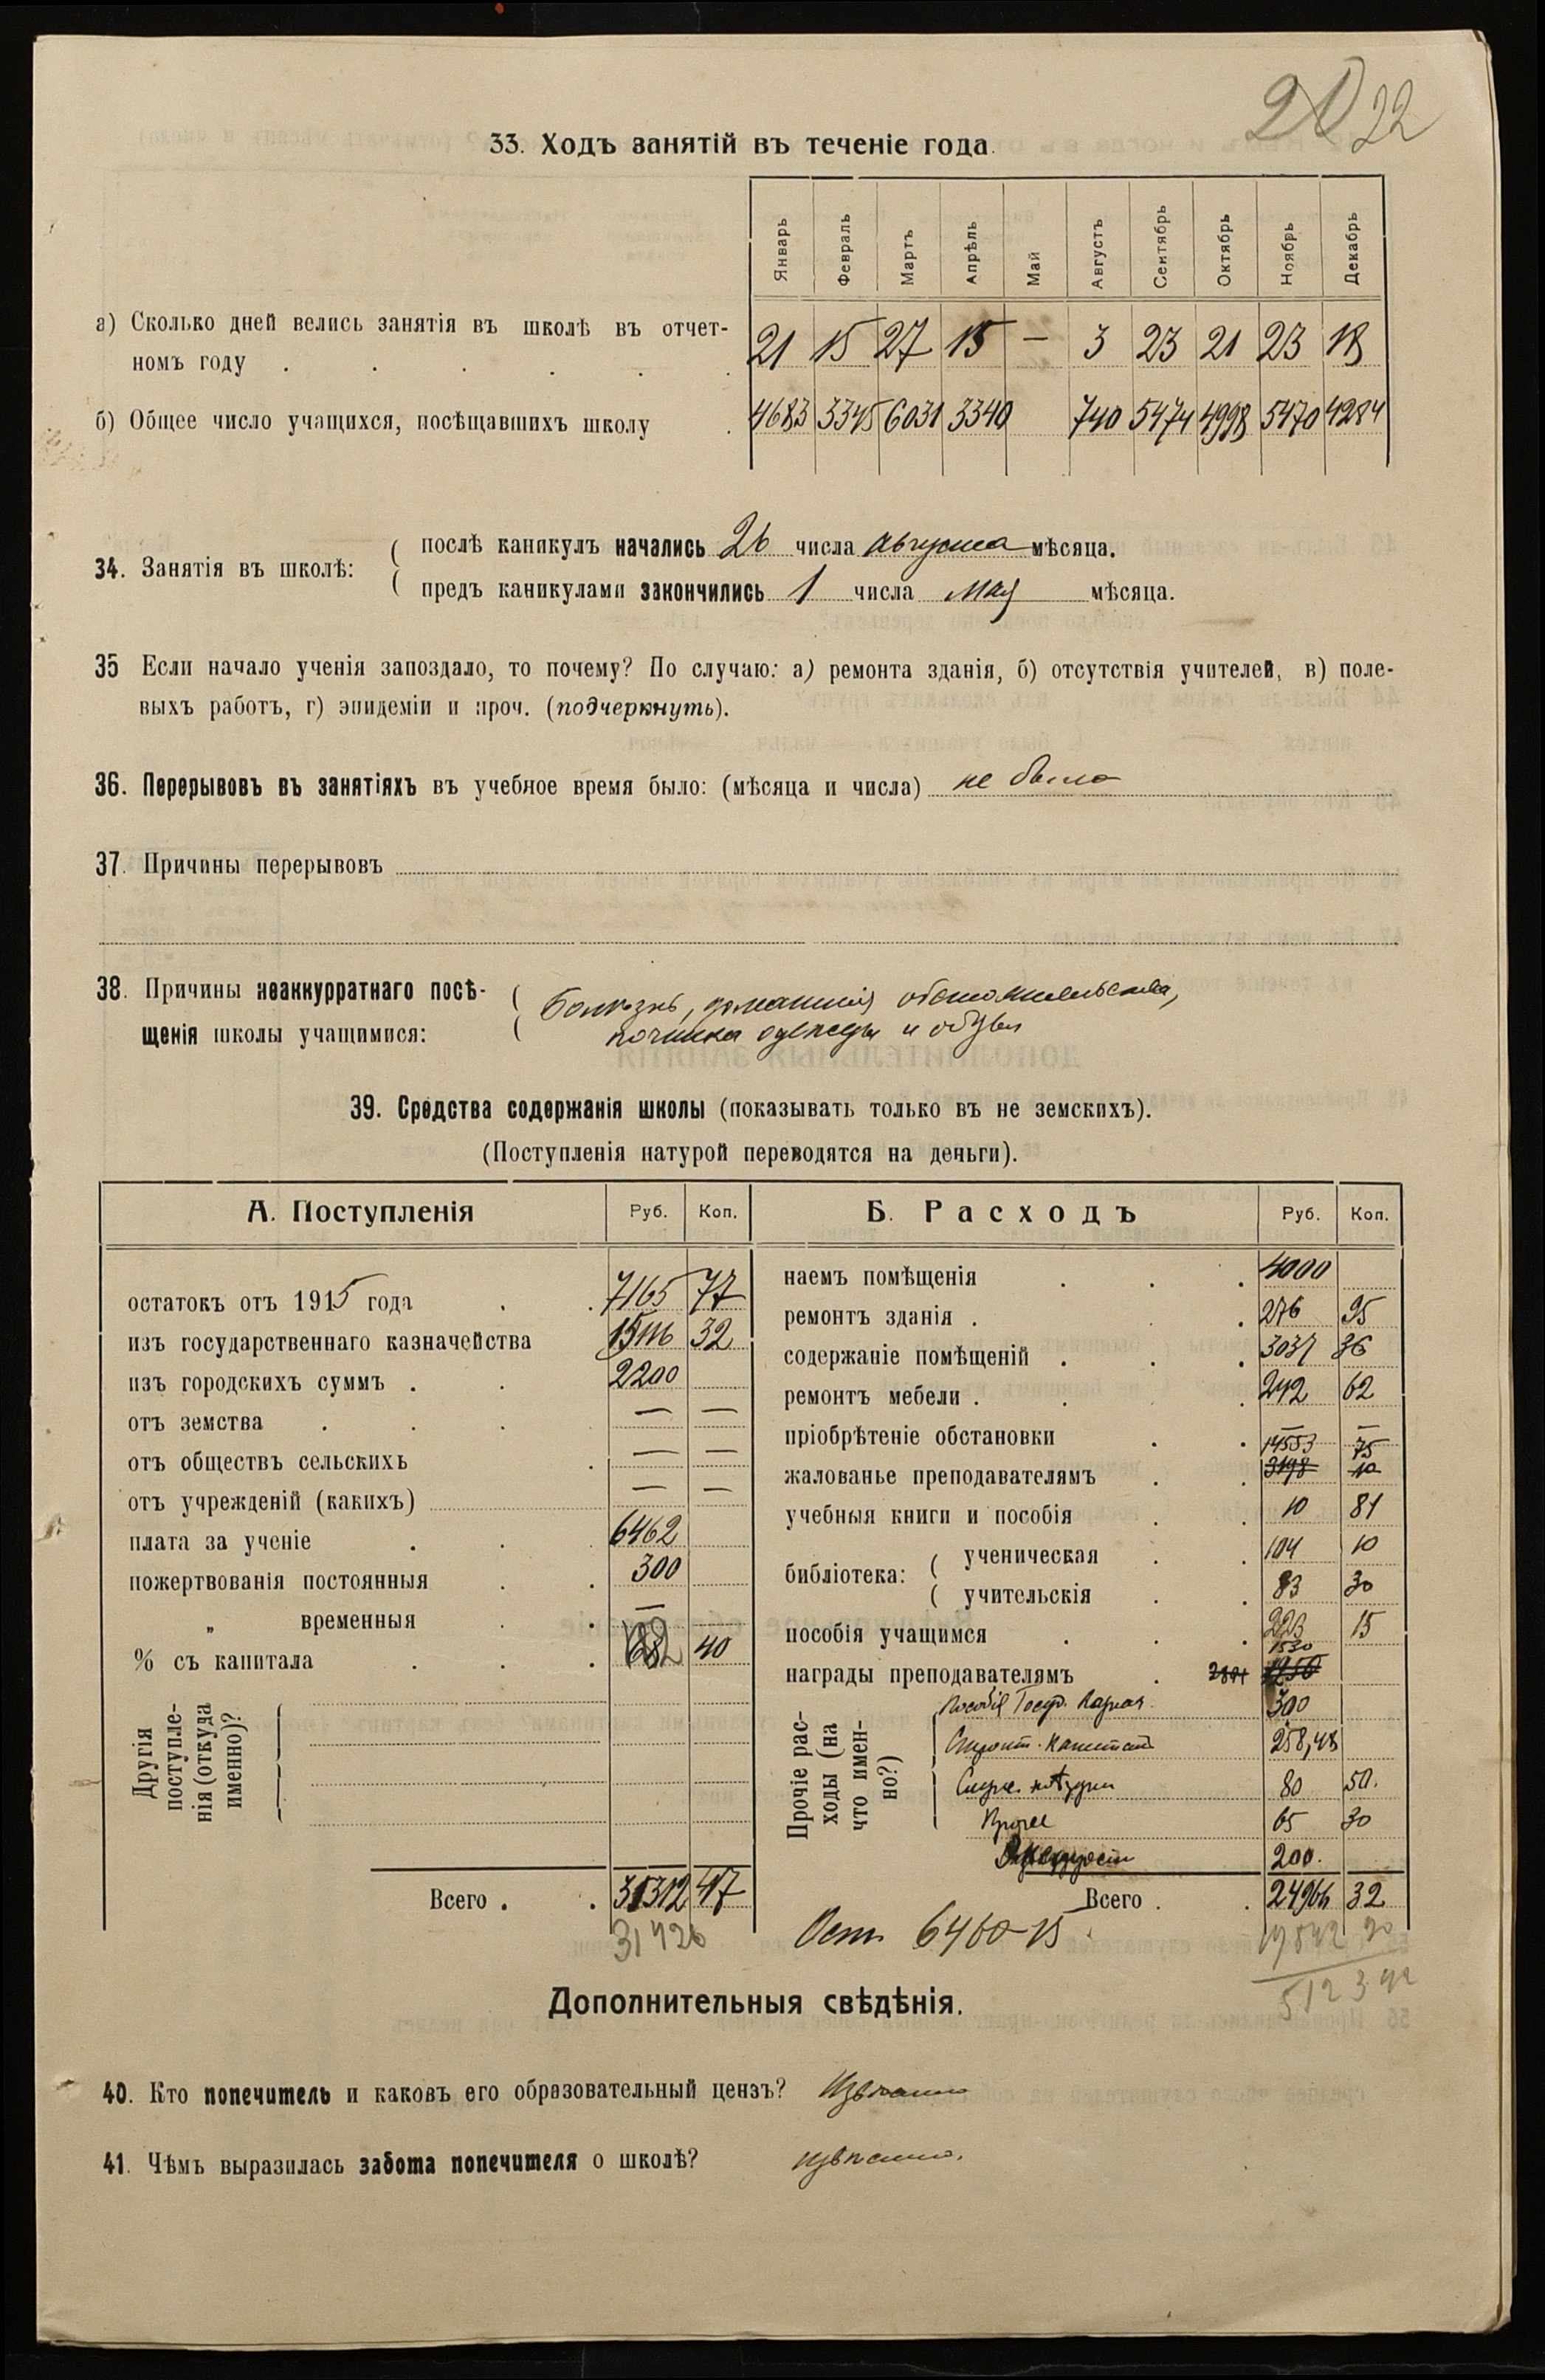 20 22
33. Ходъ занятій въ теченіе года.
Январь Февраль Мартъ Апрѣль Май Августъ Сентябрь Октябрь Ноябрь Декабрь
а) Сколько дней велись занятія въ школѣ въ отчет-
номъ году 21 15 27 15 — 3 23 21 23 18
б) Общее число учащихся, посѣщавшихъ школу 4683 3345 6031 3340 740 5474 4998 5470 4284
34. Занятія въ школѣ:
послѣ каникулъ начались 26 числа августа мѣсяца.
предъ каникулами закончились 1 числа мая мѣсяца.
35 Если начало ученія запоздало, то почему? По случаю: а) ремонта зданія, б) отсутствія учителей, в) поле-
выхъ работъ, г) эпидеміи и проч. (подчеркнуть).
36. Перерывовъ въ занятіяхъ въ учебное время было: (мѣсяца и числа) не было
37. Причины перерывовъ
38. Причины неаккурратнаго посѣ-
щенія школы учащимися:
Болѣзнь, домашнія обстоятельства,
починка одежды и обуви
39. Средства содержанія школы (показывать только въ не земскихъ).
(Поступленія натурой переводятся на деньги).
А. Поступленія Руб. Коп.
остатокъ отъ 1915 года 7165 77
изъ государственнаго казначейства 32
изъ городскихъ суммъ 2200
отъ земства — —
отъ обществъ сельскихъ — —
отъ учрежденій (какихъ) — —
плата за ученіе 6462
пожертвованія постоянныя 300
„ временныя —
% съ капитала 40
Другія поступле-
нія (откуда
именно)?
Всего 31312 47
31426
Б. Расходъ Руб. Коп.
наемъ помѣщенія 4000
ремонтъ зданія 276 95
содержаніе помѣщеній 3037 36
ремонтъ мебели 242 62
пріобрѣтеніе обстановки — —
жалованье преподавателямъ 14553 75
3198 10
учебныя книги и пособія 10 81
библіотека:
ученическая 104 10
учительскія 83 30
пособія учащимся 223 15
награды преподавателямъ 1530
Прочіе рас-
ходы (на
что имен-
но?)
Пособія Госуд. Казнач. 300
258,48
80 50.
Прочее 65 30
200.
Всего 32
Ост. 6460-15
19842 90
5123 42
Дополнительныя свѣдѣнія.
40. Кто попечитель и каковъ его образовательный цензъ? Извѣстно
41. Чѣмъ выразилась забота попечителя о школѣ? извѣстно.